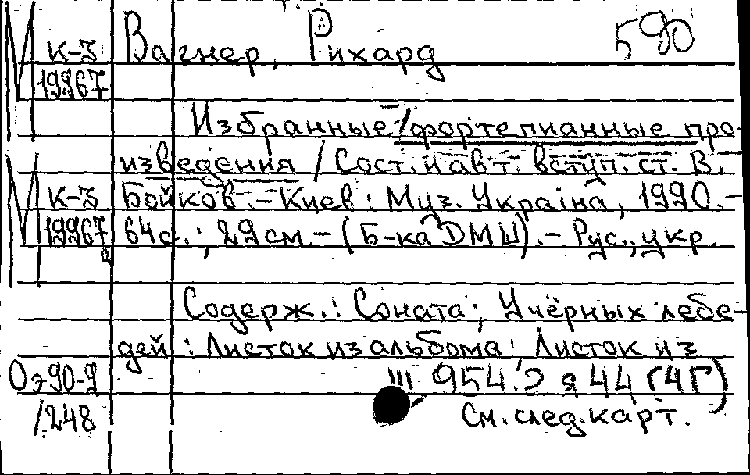 М К-3 Вагнер, Рихард 590
19967
Избранные /фортепианные про-
изведения / Сост. и авт. вступ. ст. В.
М К-3 Бойков. – Киев : Муз. Україна, 1990. –
19967 64с. ; 29см. – (Б-ка ДМШ). – Рус., укр.
Содерж.: Соната ; У чёрных лебе-
дей ; Листок из альбома ; Листок из
Оэ90-9 Ш 954.2 я 44 (4Г)
/248 См. след. карт.